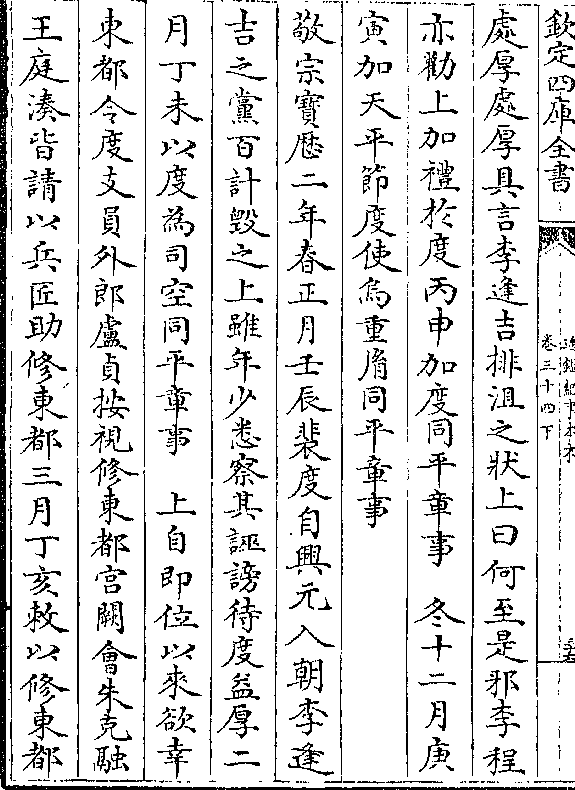 欽定四庫全書
通鑑紀事本末
卷三十四下
處厚處厚具言李逢吉排沮之狀上曰何至是邪李程
亦勸上加禮於度丙申加度同平章事　冬十二月庚
寅加天平節度使烏重𦙍同平章事
敬宗寶厯二年春正月壬辰裴度自興元入朝李逢
吉之黨百計毁之上雖年少悉察其誣謗待度益厚二
月丁未以度為司空同平章事　上自即位以來欲幸
東都令度支員外郎盧貞按視修東都宫闕會朱克融
王庭湊皆請以兵匠助修東都三月丁亥敕以修東都